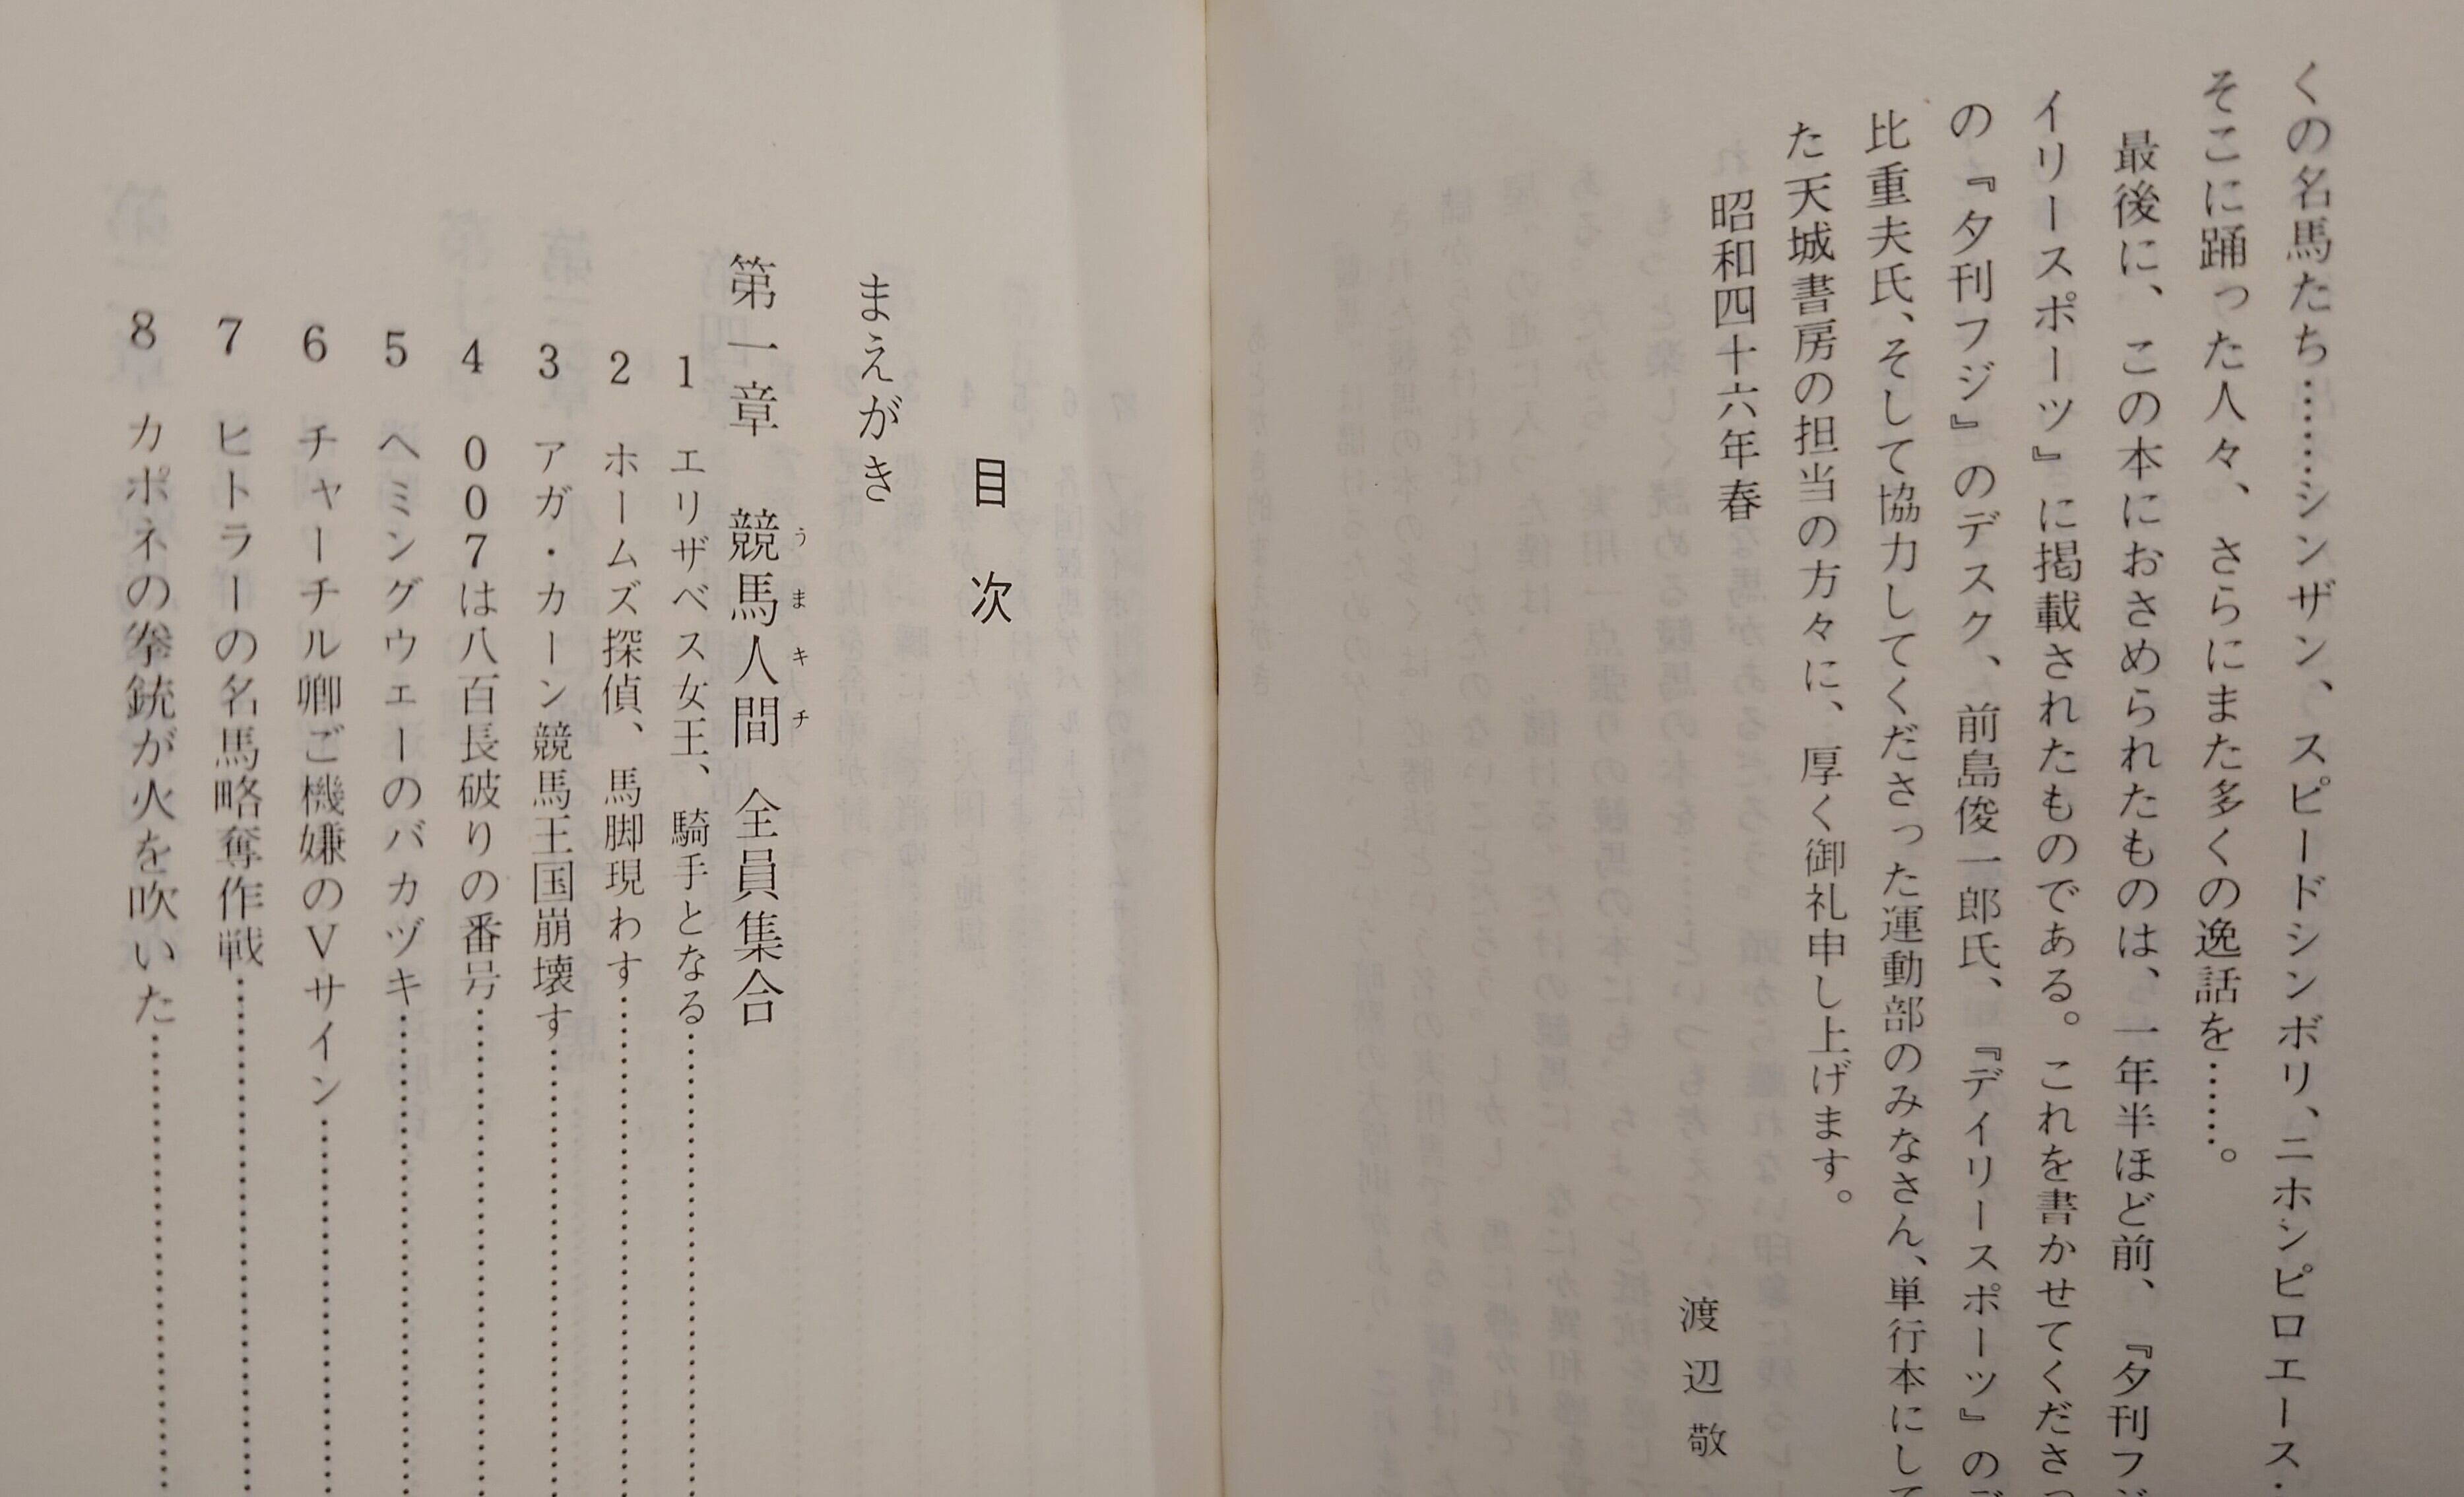 くの名馬たち……シンザン、スピードシンボリ、ニホンピロエース
そこに踊った人々、さらにまた多くの逸話を……。
最後に、この本におさめられたものは、一年半ほど前、『夕刊フ
イリースポーツ』に掲載されたものである。これを書かせてくださっ
の『夕刊フジ』のデスク、前島俊一郎氏、『デイリースポーツ』の
比重夫氏、そして協力してくださった運動部のみなさん、単行本にして
た天城書房の担当の方々に、厚く御礼申し上げます。
昭和四十六年春
渡辺敬
目次
まえがき
第一章 競馬人間全員集合
うまキチ
1 エリザベス女王、騎手となる……………………
2 ホームズ探偵、馬脚現わす……………………
3 アガ・カーン競馬王国崩壊す……………………
4 007は八百長破りの番号……………………
5 ヘミングウェーのバカヅキ……………………
6 チャーチル卿ご機嫌のVサイン……………………
7 ヒトラーの名馬略奪作戦……………………
8 カポネの拳銃が火を吹いた……………………